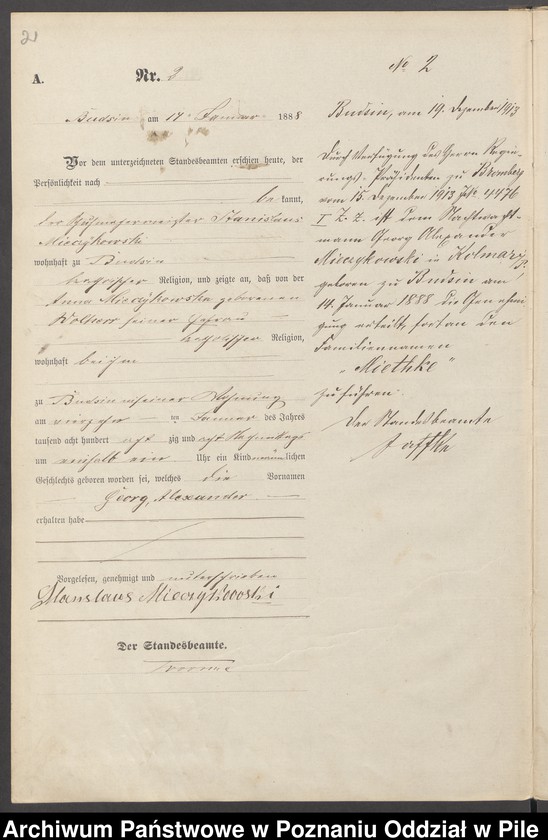 21
A.
Nr. 9
Budsin am 17. Januar 1888
Vor dem unterzeichneten Standesbeamten erschien heute, der
Persönlichkeit nach
bekannt,
der Schuhmachermeister Stanislaus
Mieczykowski
wohnhaft zu Budsin
katholischer Religion, und zeigte an, daß von der
Anna Mieczykowska geborenen
seiner Ehefrau
katholischer Religion,
wohnhaft bei ihm
zu Budsin in seiner Wohnung
am vierzehn ten Januar des Jahres
tausend acht hundert acht zig und acht Nachmittags
um einhalb ein Uhr ein Kind männlichen
Geschlechts geboren worden sei, welches die Vornamen
Georg, Alexander
erhalten habe
Vorgelesen, genehmigt und unterschrieben
Stanslaus Mieczykowski
Der Standesbeamte.
No 2
Budsin, am 19. Dezember 1913
Durch Verfügung des Herrn Regie-
rungs-Präsidenten zu Bromberg
vom 15. Dezember 1913 4476
I Z. Z. ist dem
mann Georg Alexander
Mieczykowski in Kolmar i/P.
geboren zu Budsin am
14. Januar 1888 die Genehmi-
gung erteilt, fortan den
Familiennamen
„Miethke“
zu führen.
Der Standesbeamte
Archiwum Państwowe w Poznaniu Oddział w Pile